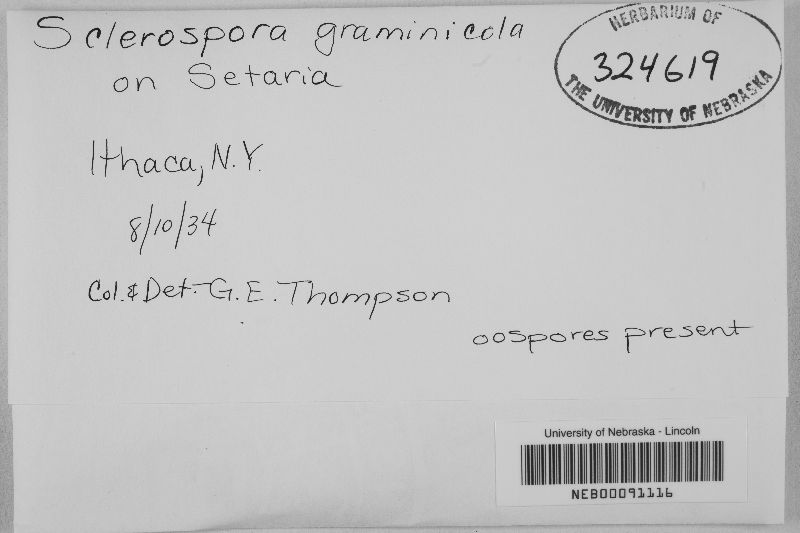 Sclerospora graminicola
on Setaria
HERBARIUM OF
324619
THE UNIVERSITY OF NEBRASKA
Ithaca, N.Y.
8/10/34
Col. & Det. - G. E. Thompson
oospores present
University of Nebraska - Lincoln
NEB00091116